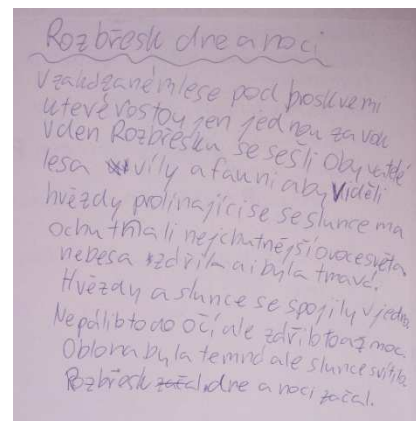 Rozbřesk dne a noci
V zakázaném lese pod broskvemi
které rostou jen jednou za rok
v den Rozbřesku se sešli obyvatelé
lesa víly a fauni aby viděli
hvězdy prolínající se se slunce ma
ochutnali nejchutnější ovoce světa
nebesa zdřila a i byla tmavá.
Hvězdy a slunce se spojily v jedno
Nepálibto do očí ale zdřibto až moc.
Obloha byla temná ale slunce svítilo.
Rozbřesk začal dne a noci začal.